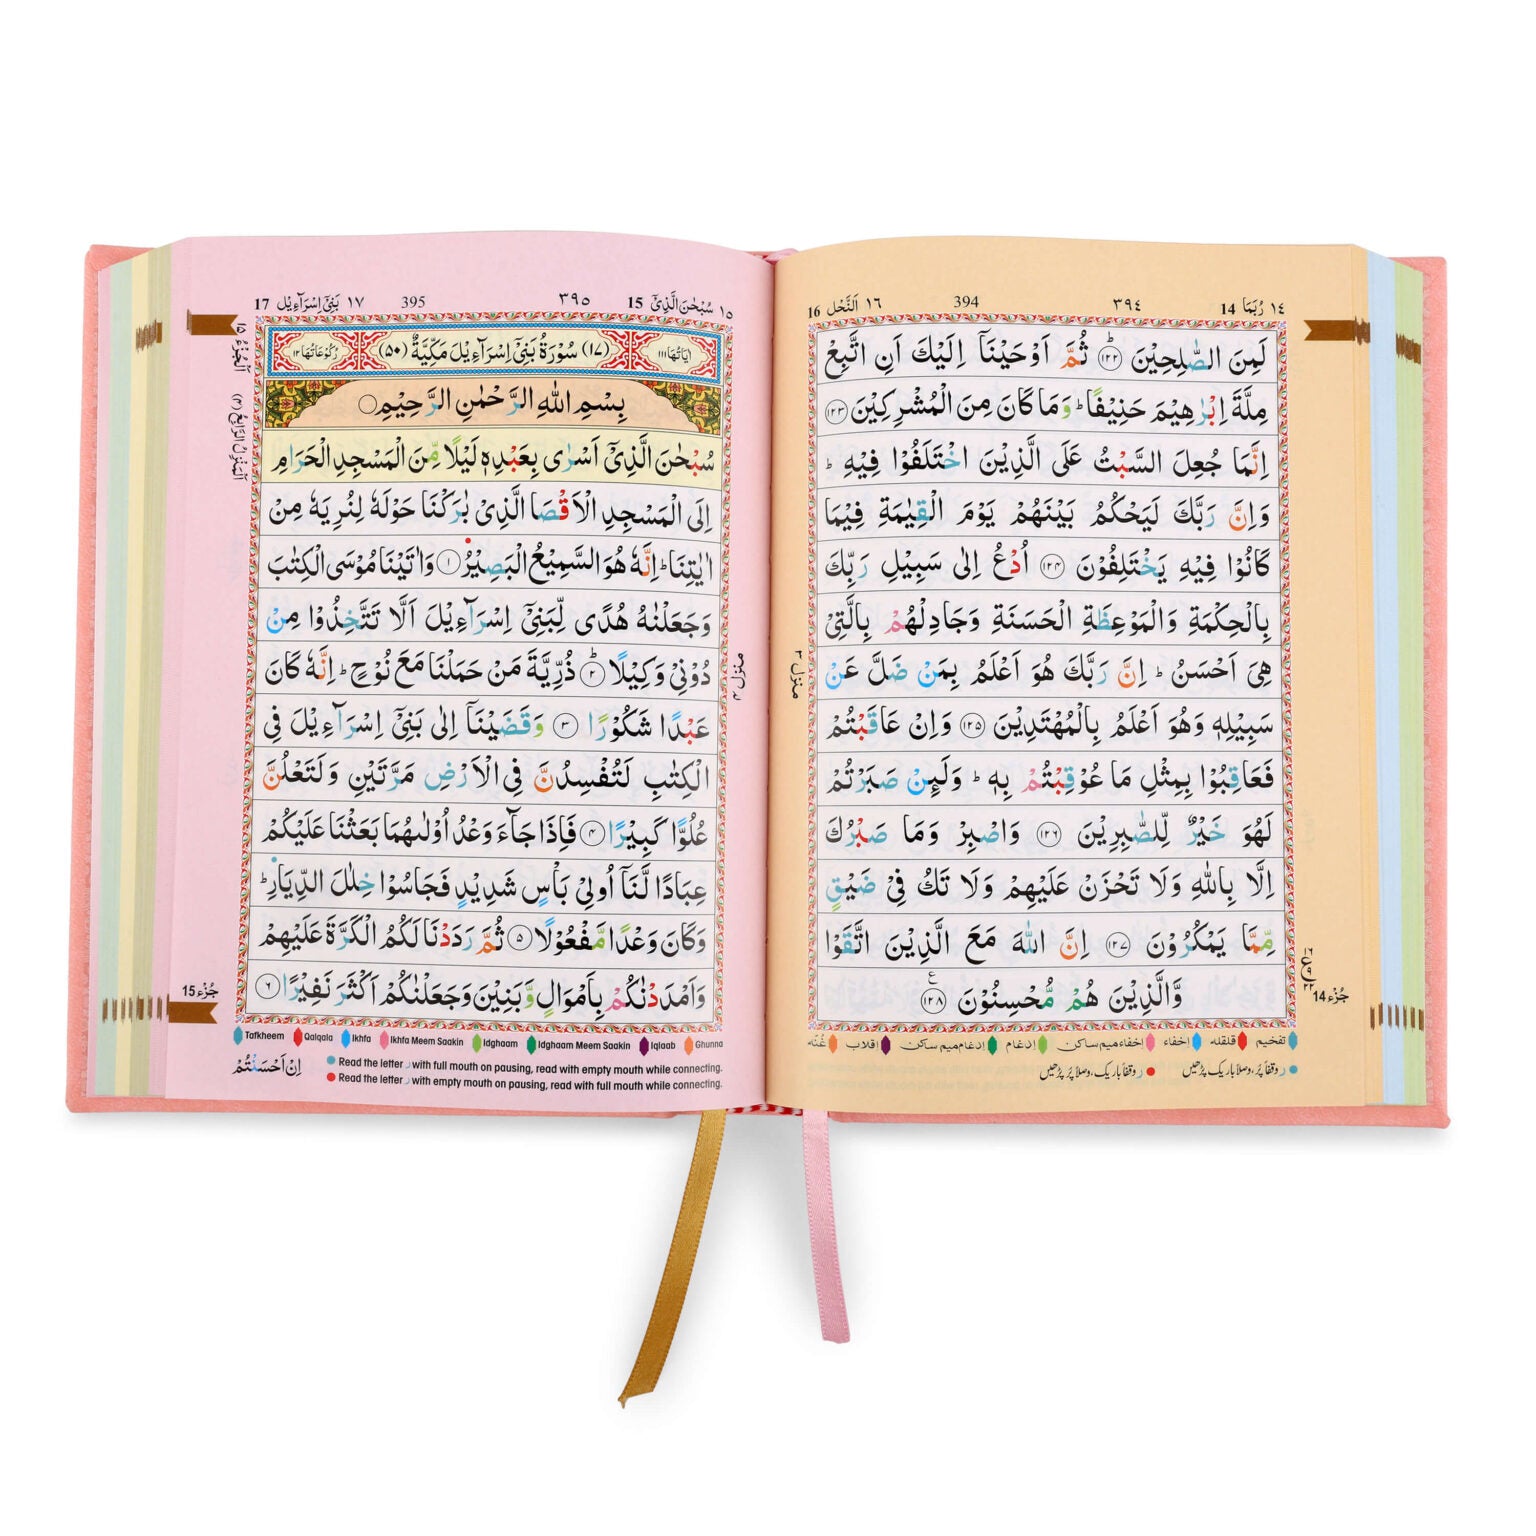 ١٤ رُبَمَا 14
٣٩٤
394
اَلنَّحْل ١٦ 16
لَمِنَ الصّٰلِحِيْنَ ﴿١٢٢﴾ ثُمَّ اَوْحَيْنَاۤ اِلَيْكَ اَنِ اتَّبِعْ
مِلَّةَ اِبْرٰهِيْمَ حَنِيْفًا ؕ وَمَا كَانَ مِنَ الْمُشْرِكِيْنَ ﴿١٢٣﴾
اِنَّمَا جُعِلَ السَّبْتُ عَلَى الَّذِيْنَ اخْتَلَفُوْا فِيْهِ ؕ
وَاِنَّ رَبَّكَ لَيَحْكُمُ بَيْنَهُمْ يَوْمَ الْقِيٰمَةِ فِيْمَا
كَانُوْا فِيْهِ يَخْتَلِفُوْنَ ﴿١٢٤﴾ اُدْعُ اِلٰى سَبِيْلِ رَبِّكَ
بِالْحِكْمَةِ وَالْمَوْعِظَةِ الْحَسَنَةِ وَجَادِلْهُمْ بِالَّتِيْ
هِيَ اَحْسَنُ ؕ اِنَّ رَبَّكَ هُوَ اَعْلَمُ بِمَنْ ضَلَّ عَنْ
سَبِيْلِهٖ وَهُوَ اَعْلَمُ بِالْمُهْتَدِيْنَ ﴿١٢٥﴾ وَاِنْ عَاقَبْتُمْ
فَعَاقِبُوْا بِمِثْلِ مَا عُوْقِبْتُمْ بِهٖ ؕ وَلَئِنْ صَبَرْتُمْ
لَهُوَ خَيْرٌ لِّلصّٰبِرِيْنَ ﴿١٢٦﴾ وَاصْبِرْ وَمَا صَبْرُكَ
اِلَّا بِاللّٰهِ وَلَا تَحْزَنْ عَلَيْهِمْ وَلَا تَكُ فِيْ ضَيْقٍ
مِّمَّا يَمْكُرُوْنَ ﴿١٢٧﴾ اِنَّ اللّٰهَ مَعَ الَّذِيْنَ اتَّقَوْا
وَّالَّذِيْنَ هُمْ مُّحْسِنُوْنَ ﴿١٢٨﴾
منزل ٣
جُزْء 14
تفخیم قلقله إخفاء إخفاء ميم ساكن إدغام إدغام ميم ساكن إقلاب غُنّه
ر وقفاً پُر، وصلاً باریک پڑھیں
ر وقفاً باریک، وصلاً پُر پڑھیں
١٥ سُبْحٰنَ الَّذِيْٓ 15
٣٩٥
395
١٧ بَنِيْٓ اِسْرَآءِيْل 17
اٰيَاتُهَا ١١١
(١٧) سُوْرَةُ بَنِيْٓ اِسْرَآءِيْلَ مَكِّيَّةٌ (٥٠)
رُكُوْعَاتُهَا ١٢
بِسْمِ اللّٰهِ الرَّحْمٰنِ الرَّحِيْمِ
سُبْحٰنَ الَّذِيْٓ اَسْرٰى بِعَبْدِهٖ لَيْلًا مِّنَ الْمَسْجِدِ الْحَرَامِ
اِلَى الْمَسْجِدِ الْاَقْصَا الَّذِيْ بٰرَكْنَا حَوْلَهٗ لِنُرِيَهٗ مِنْ
اٰيٰتِنَا ؕ اِنَّهٗ هُوَ السَّمِيْعُ الْبَصِيْرُ ﴿١﴾ وَاٰتَيْنَا مُوْسَى الْكِتٰبَ
وَجَعَلْنٰهُ هُدًى لِّبَنِيْٓ اِسْرَآءِيْلَ اَلَّا تَتَّخِذُوْا مِنْ
دُوْنِيْ وَكِيْلًا ﴿٢﴾ ذُرِّيَّةَ مَنْ حَمَلْنَا مَعَ نُوْحٍ ؕ اِنَّهٗ كَانَ
عَبْدًا شَكُوْرًا ﴿٣﴾ وَقَضَيْنَاۤ اِلٰى بَنِيْٓ اِسْرَآءِيْلَ فِي
الْكِتٰبِ لَتُفْسِدُنَّ فِي الْاَرْضِ مَرَّتَيْنِ وَلَتَعْلُنَّ
عُلُوًّا كَبِيْرًا ﴿٤﴾ فَاِذَا جَآءَ وَعْدُ اُوْلٰىهُمَا بَعَثْنَا عَلَيْكُمْ
عِبَادًا لَّنَاۤ اُولِيْ بَاْسٍ شَدِيْدٍ فَجَاسُوْا خِلٰلَ الدِّيَارِ ؕ
وَكَانَ وَعْدًا مَّفْعُوْلًا ﴿٥﴾ ثُمَّ رَدَدْنَا لَكُمُ الْكَرَّةَ عَلَيْهِمْ
وَاَمْدَدْنٰكُمْ بِاَمْوَالٍ وَّبَنِيْنَ وَجَعَلْنٰكُمْ اَكْثَرَ نَفِيْرًا ﴿٦﴾
منزل ٤
اَلْجُزْءُ ١٥
اَلْمَنْزِلُ الرَّابِعُ (٤)
جُزْء 15
Tafkheem Qalqala Ikhfa Ikhfa Meem Saakin Idghaam Idghaam Meem Saakin Iqlaab Ghunna
Read the letter ر with full mouth on pausing, read with empty mouth while connecting.
Read the letter ر with empty mouth on pausing, read with full mouth while connecting.
اِنْ اَحْسَنْتُمْ